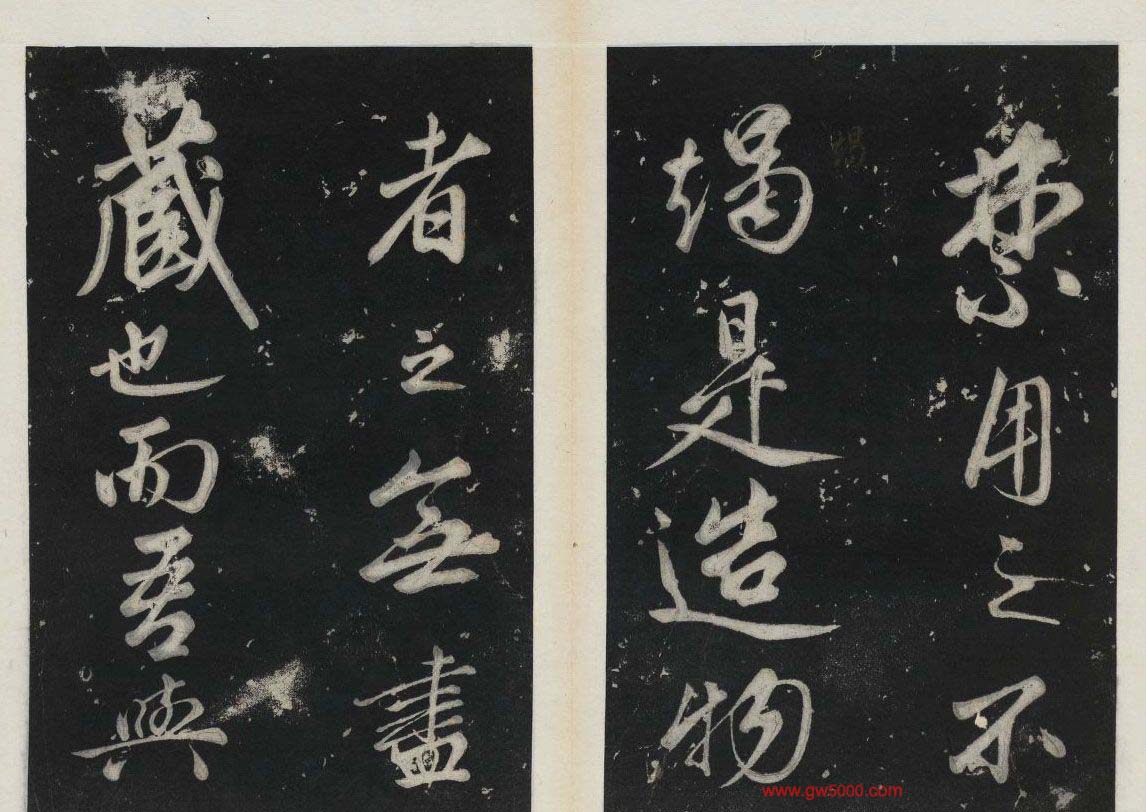 禁用之不
竭是造物
者之無盡
藏也而吾與
www.gw5000.com